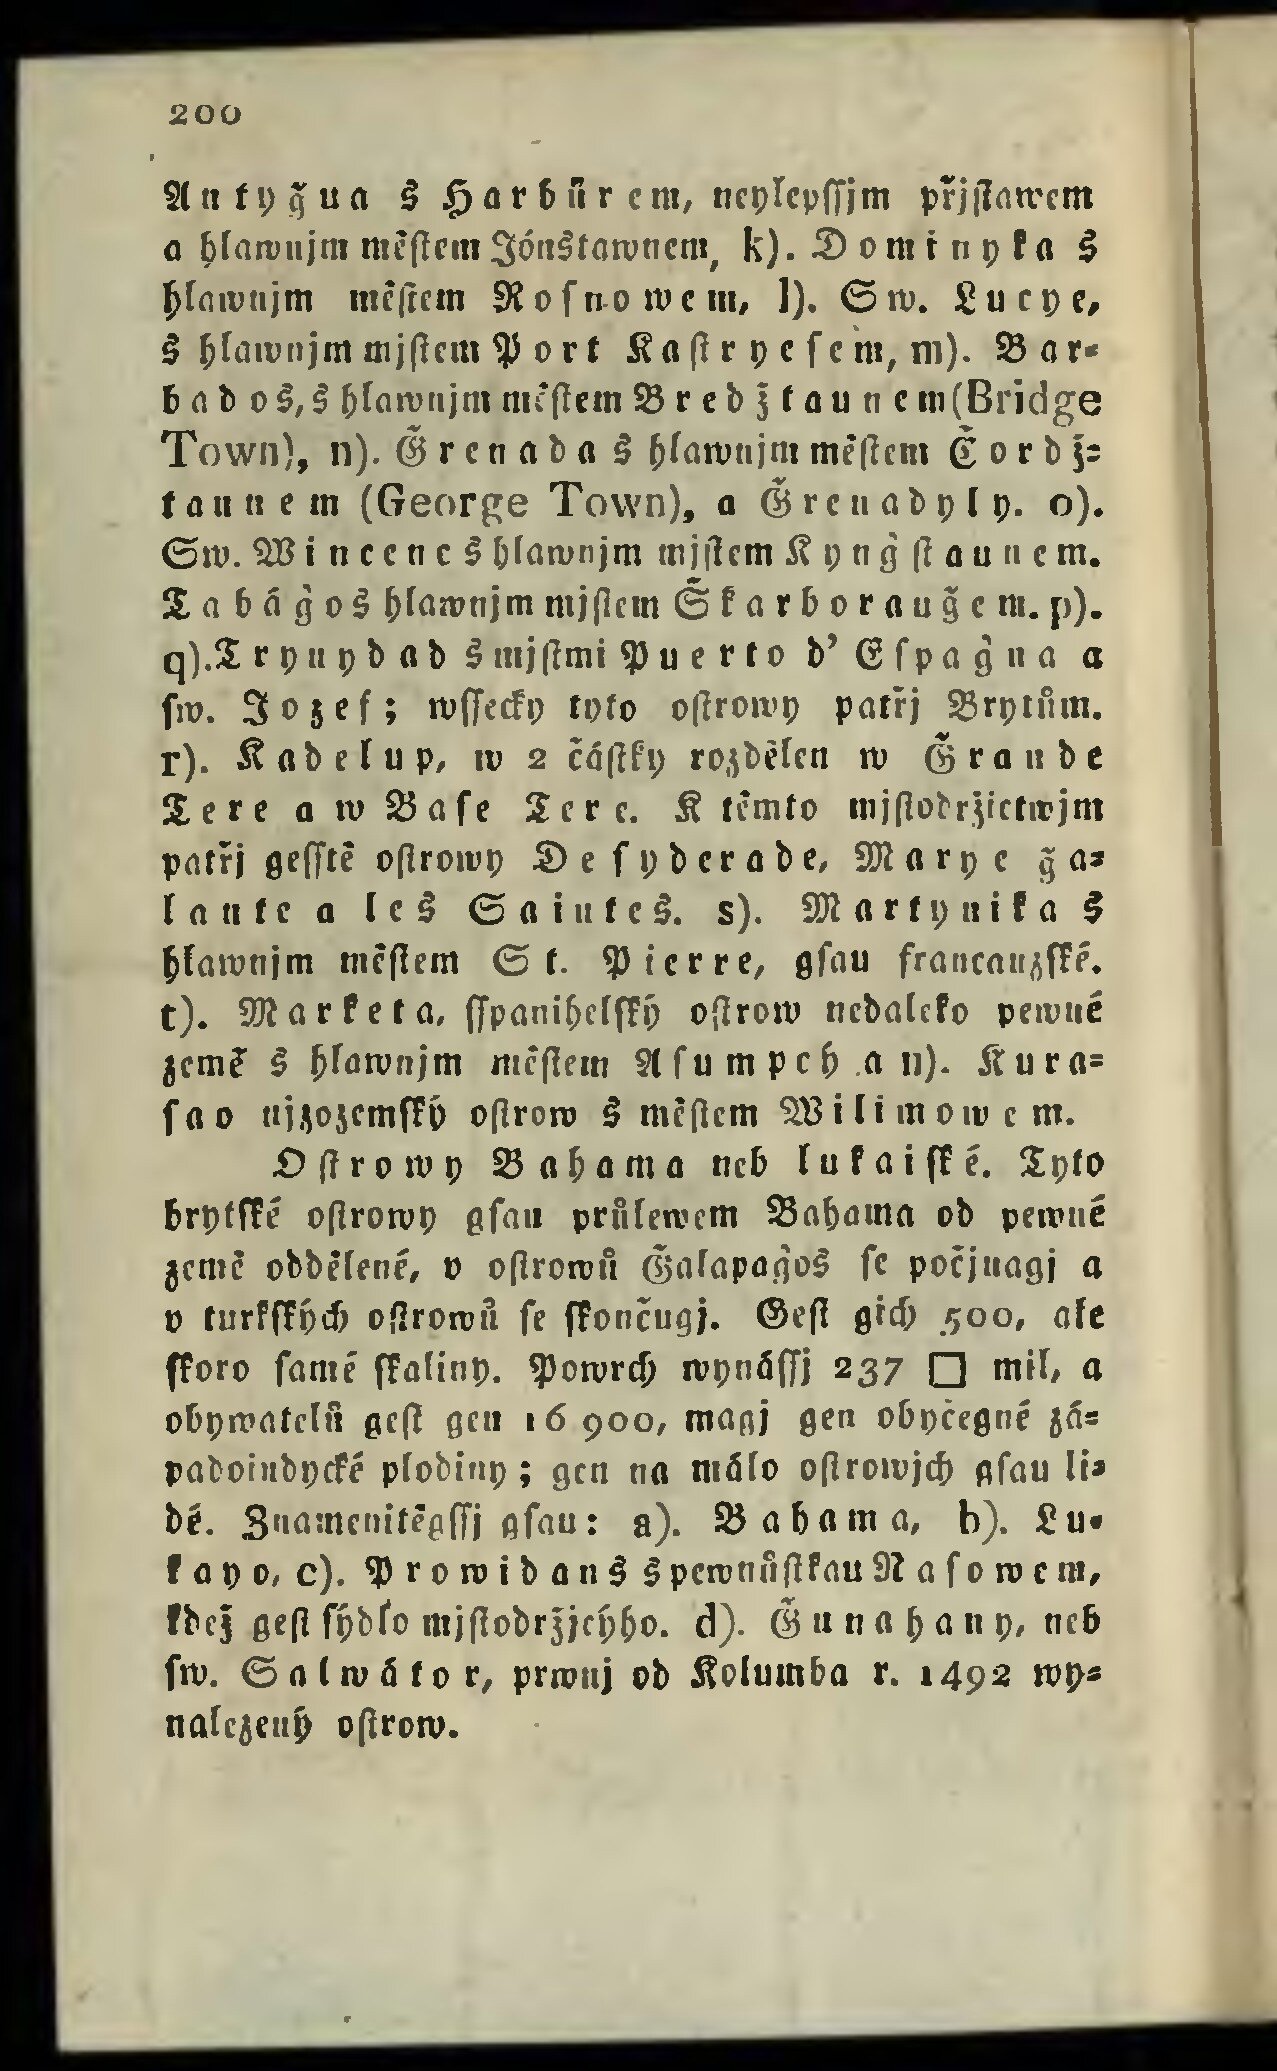 200
Antyǧua s Harbůrem, neylepſſjm přjſtawem
a hlawnjm měſtem Jónstawnem, k). Dominyka s
hlawnjm měſtem Roſnowem, l). Sw. Lucye,
s hlawnjm mjſtem Port Kaſtryeſem, m). Bar-
bados, s hlawnjm měſtem Bredžtaunem (Bridge
Town), n). Ǧrenada s hlawnjm měſtem Čordž-
taunem (George Town), a Ǧrenadyly. o).
Sw. Wincenc s hlawnjm mjſtem Kynǧſtaunem.
Tabáǧo s hlawnjm mjſtem Škarborauǧem. p).
q). Trynydad s mjſtmi Puerto d' Eſpaǧna a
ſw. Jozef; wſſecky tyto oſtrowy patřj Brytům.
r). Kadelup, w 2 čáſtky rozdělen w Ǧrande
Tere a w Baſe Tere. K těmto mjſtodržictwjm
patřj geſſtě oſtrowy Deſyderade, Marye ǧa-
lante a les Saintes. s). Martynika s
hlawnjm měſtem St. Pierre, gſau francauzſké.
t). Marketa, ſſpanihelſký oſtrow nedaleko pewné
země s hlawnjm měſtem Aſumpch a n). Kura-
ſao njzozemſký oſtrow s měſtem Wilimowem.
Oſtrowy Bahama neb lukaiſké. Tyto
brytſké oſtrowy gſau průlewem Bahama od pewné
země oddělené, v oſtrowů Ǧalapaǧos ſe počjnagj a
v turkſkých oſtrowů ſe ſkončugj. Geſt gich 500, ale
ſkoro ſamé ſkaliny. Powrch wynáſſj 237 □ mil, a
obywatelů geſt gen 16 900, magj gen obyčegné zá-
padoindycké plodiny; gen na málo oſtrowjch gſau li-
dé. Znamenitěgſſj gſau: a). Bahama, b). Lu-
kayo, c). Prowidans s pewnůſtkau Naſowem,
kdež geſt ſýdlo mjſtodržjcýho. d). Ǧunahany, neb
ſw. Salwátor, prwnj od Kolumba r. 1492 wy-
nalezený oſtrow.